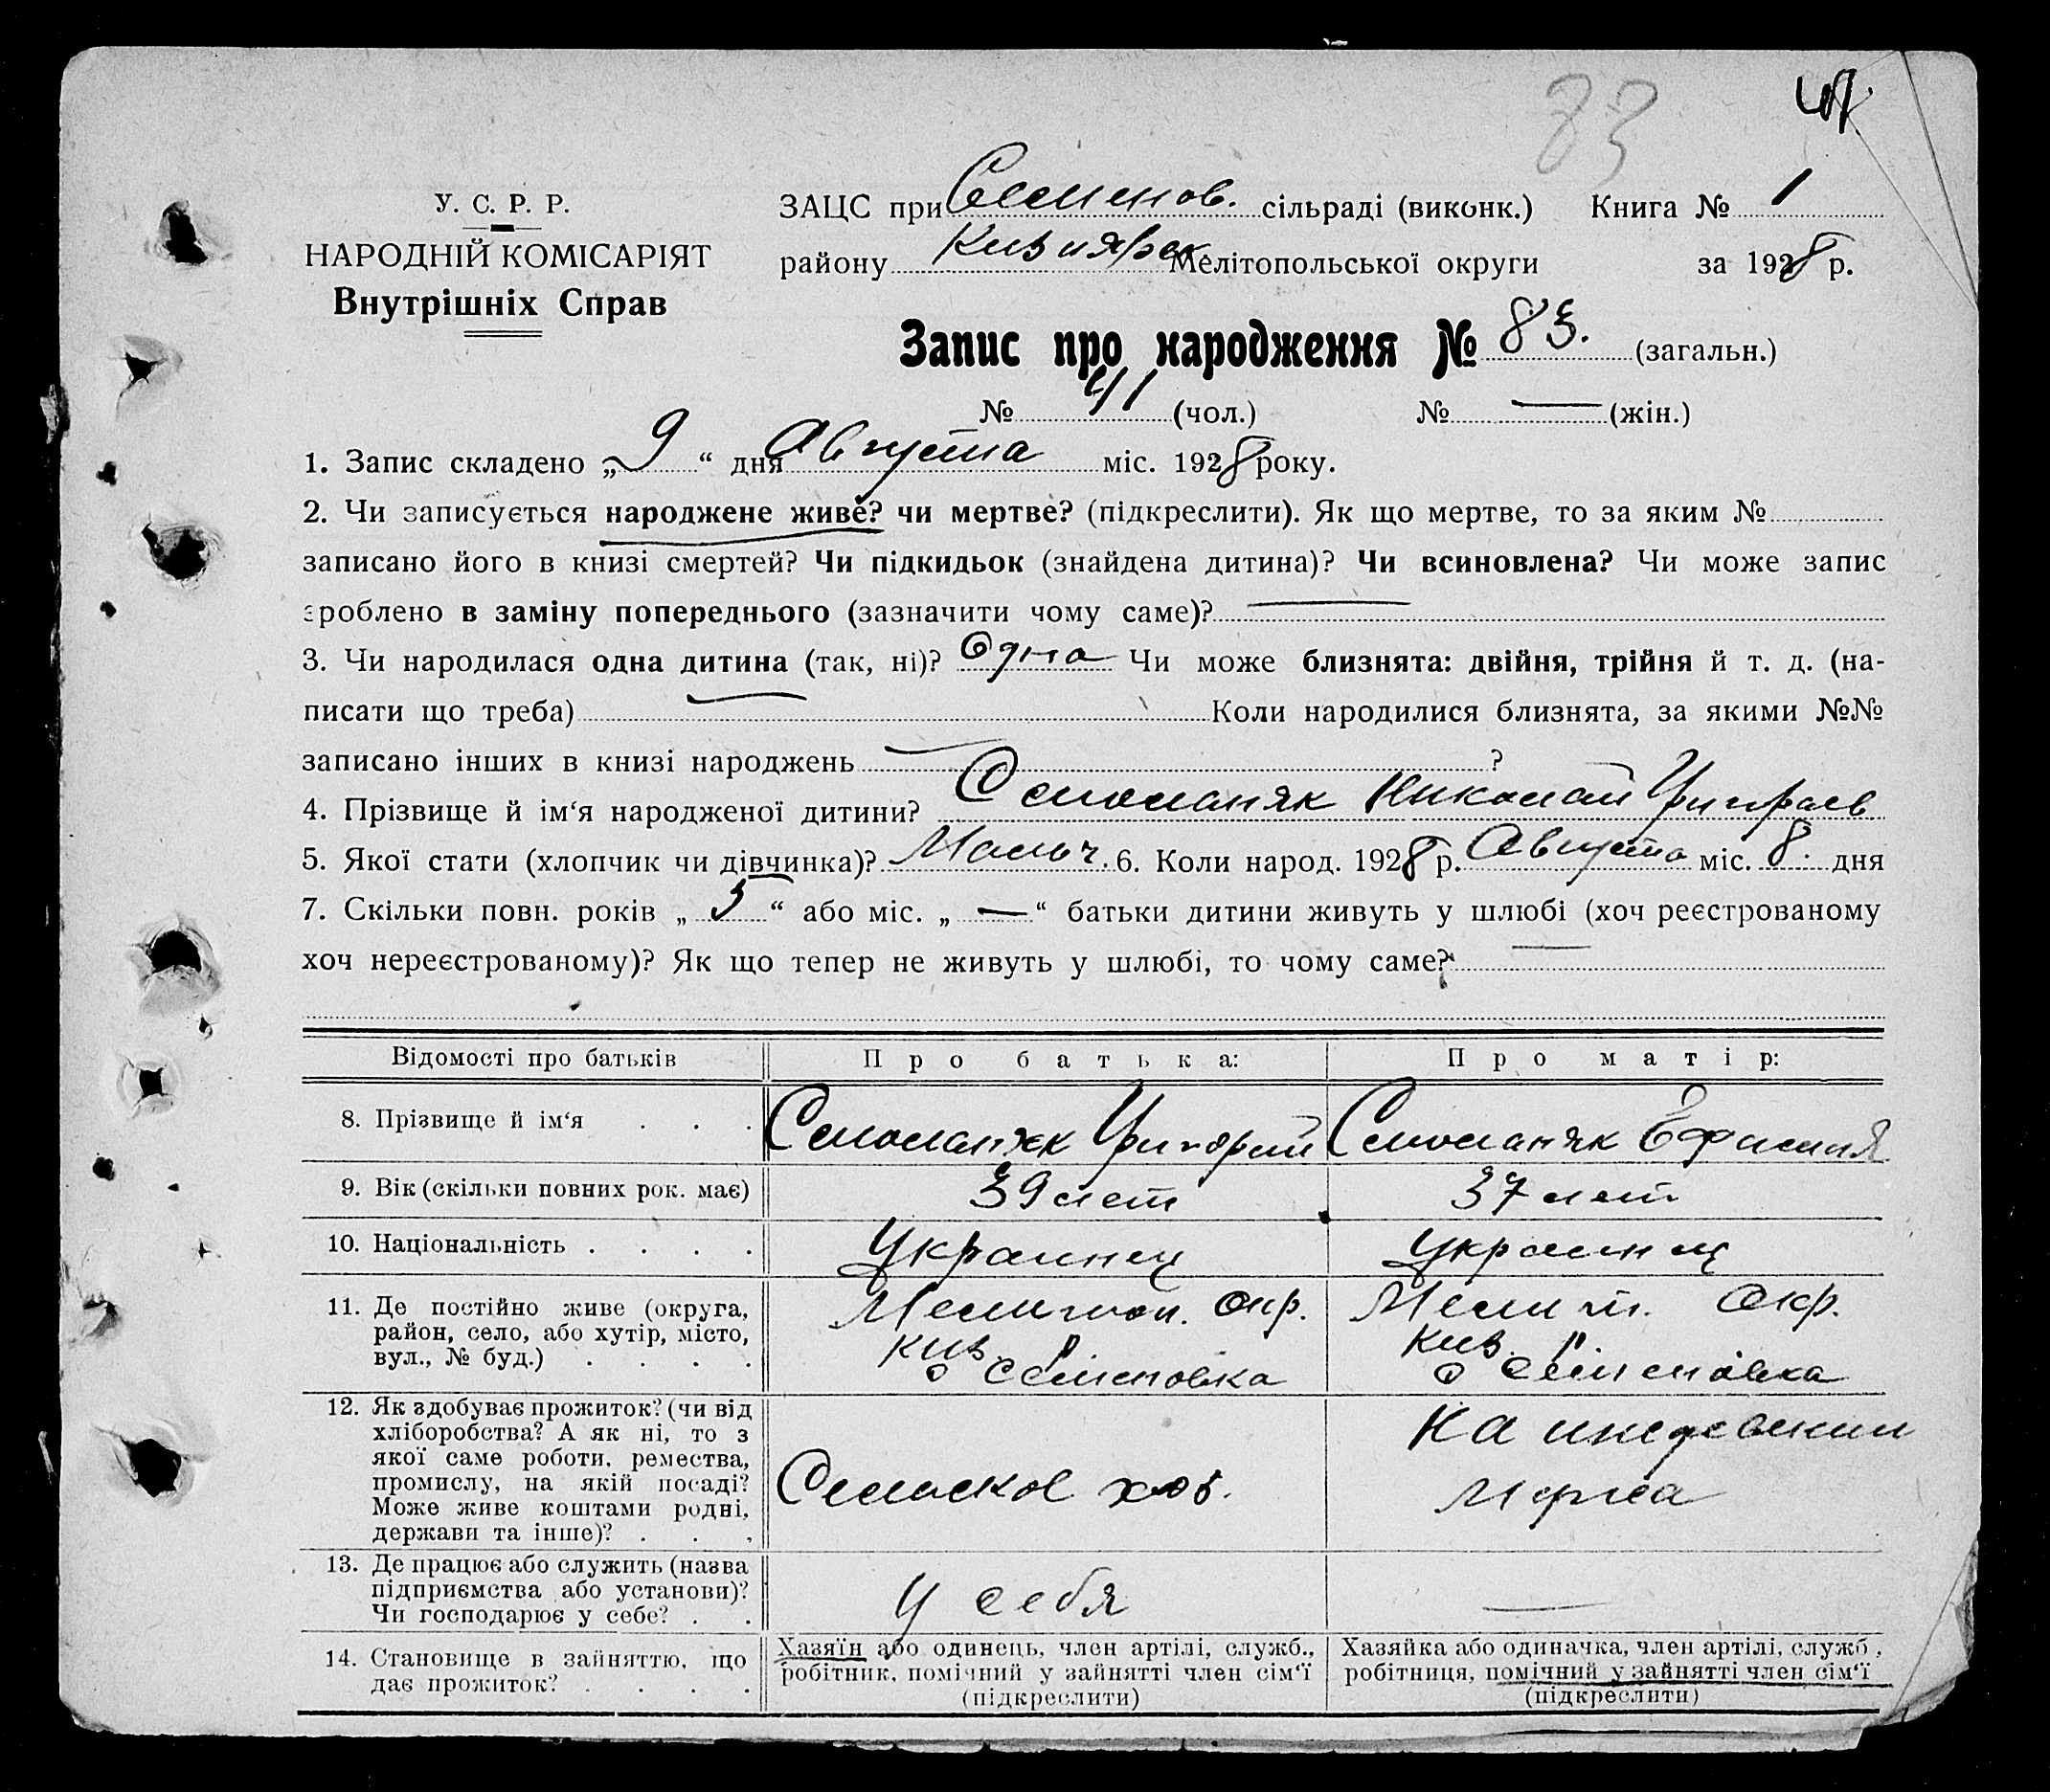 83
У. С. Р. Р.
НАРОДНІЙ КОМІСАРІЯТ
Внутрішніх Справ
ЗАЦС при Семенов. сільраді (виконк.) Книга № 1
району Кизиярск. Мелітопольської округи за 1928 р.
Запис про народження № 83. (загальн.)
№ 41 (чол.) № — (жін.)
1. Запис складено „9“ дня Августа міс. 1928 року.
2. Чи записується народжене живе? чи мертве? (підкреслити). Як що мертве, то за яким №
записано його в книзі смертей? Чи підкидьок (знайдена дитина)? Чи всиновлена? Чи може запис
зроблено в заміну попереднього (зазначити чому саме)? —
3. Чи народилася одна дитина (так, ні)? Одна Чи може близнята: двійня, трійня й т. д. (на-
писати що треба) — Коли народилися близнята, за якими №№
записано інших в книзі народжень — ?
4. Прізвище й ім‘я народженої дитини? Смоланяк Николай Григраев
5. Якої стати (хлопчик чи дівчинка)? Мальч. 6. Коли народ. 1928 р. Августа міс. 8. дня
7. Скільки повн. років „3“ або міс. „—“ батьки дитини живуть у шлюбі (хоч реєстрованому
хоч нереєстрованому)? Як що тепер не живуть у шлюбі, то чому саме? —
Відомості про батьків Про батька: Про матір:
8. Прізвище й ім‘я . . . Смоланяк Григорий Смоланяк Ефимия
9. Вік (скільки повних рок. має) 39 лет 37 лет
10. Національність . . . . Украинец Украинц
11. Де постійно живе (округа,
район, село, або хутір, місто,
вул., № буд.) . . . .
Мелитоп. Окр.
Киз. р
с Семеновка
Мелит. Окр.
Киз. р
с Семеновка
12. Як здобуває прожиток? (чи від
хліборобства? А як ні, то з
якої саме роботи, ремества,
промислу, на якій посаді?
Може живе коштами родні,
держави та інше)? . . .
Сельское хоз.
На иждевении
Мужа
13. Де працює або служить (назва
підприємства або установи)?
Чи господарює у себе? . .
У себя
—
14. Становище в зайняттю, що
дає прожиток? . . . .
Хазяїн або одинець, член артілі, служб.,
робітник, помічний у зайнятті член сім‘ї
(підкреслити)
Хазяйка або одиначка, член артілі, служб,
робітниця, помічний у зайнятті член сім‘ї
(підкреслити)